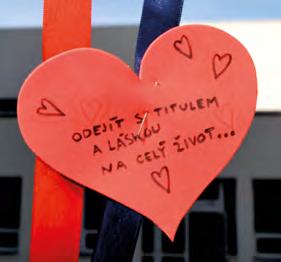 ODEJÍT S TITULEM
A LÁSKOU
NA CELÝ ŽIVOT...